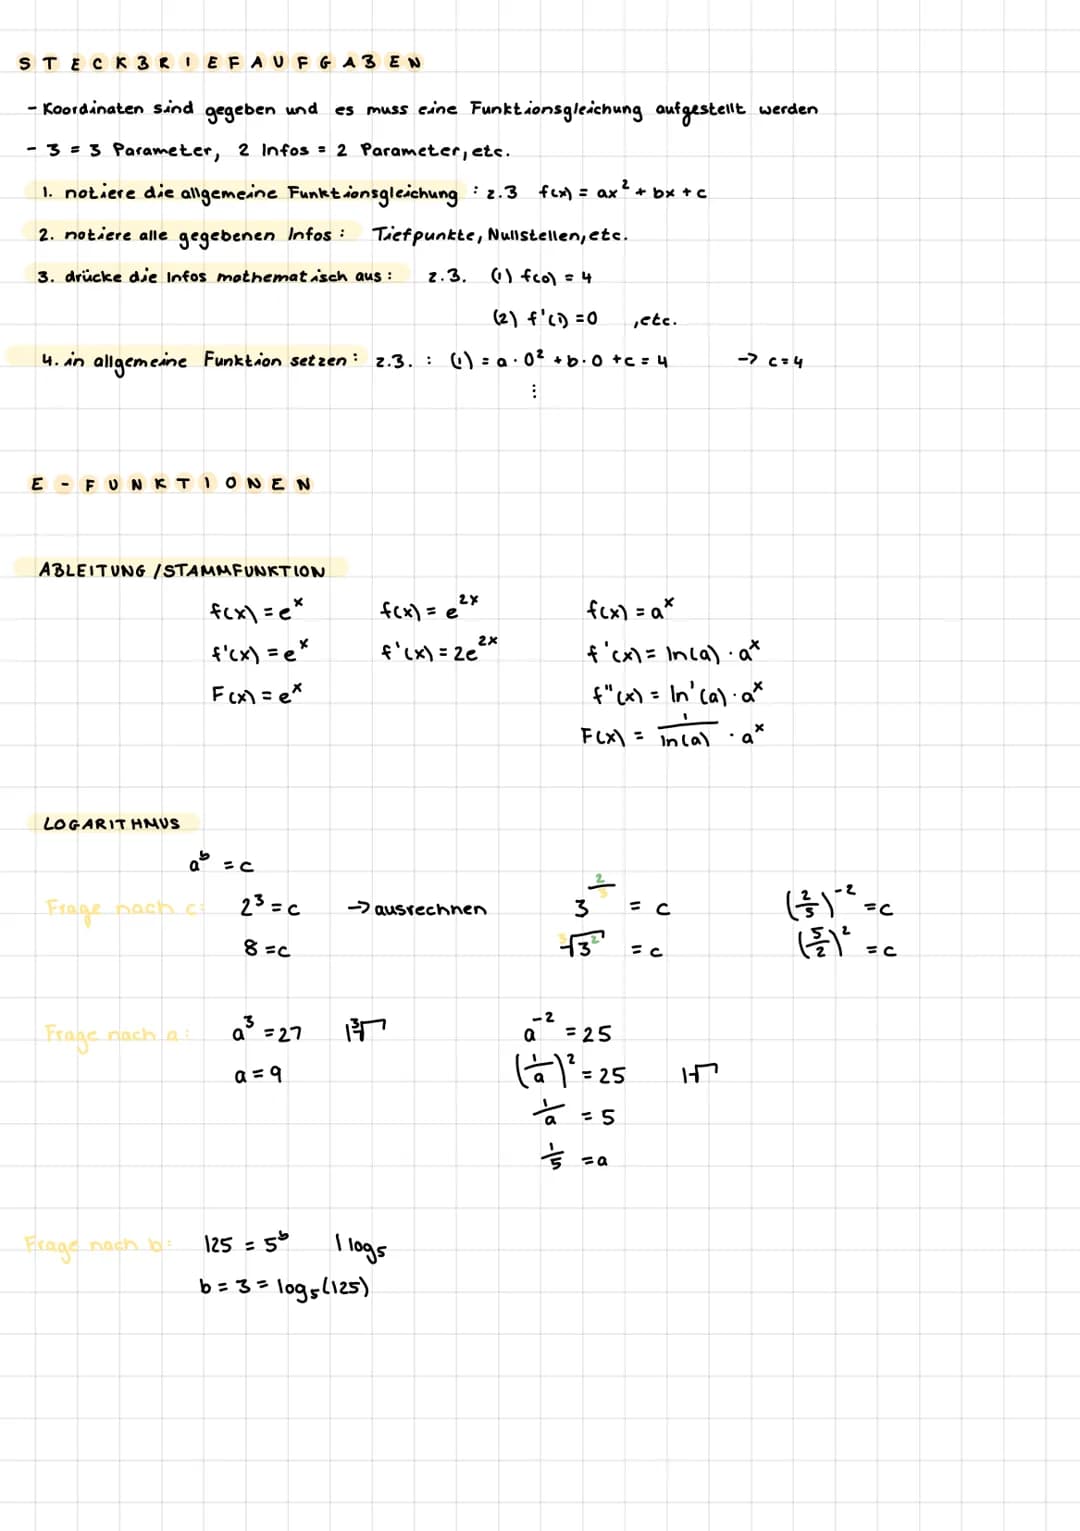 STECKBRIEFAUFGABEN
- Koordinaten sind gegeben und es muss eine Funktionsgleichung aufgestellt werden
- 3 = 3 Parameter, 2 Infos = 2 Parameter, etc.
1. notiere die allgemeine Funktionsgleichung : z.B f(x) = ax² + bx + c
2. notiere alle gegebenen Infos : Tiefpunkte, Nullstellen, etc.
3. drücke die Infos mathematisch aus : z.B. (1) f(0) = 4
(2) f'(1) = 0 , etc.
4. in allgemeine Funktion setzen : z.B. : (1) = a · 0² + b · 0 + c = 4 -> c = 4
⋮
E - FUNKTIONEN
ABLEITUNG / STAMMFUNKTION
f(x) = e^x f(x) = e^2x f(x) = a^x
f'(x) = e^x f'(x) = 2e^2x f'(x) = ln(a) · a^x
F(x) = e^x f"(x) = ln'(a) · a^x
F(x) = 1/ln(a) · a^x
LOGARITHMUS
a^b = c
Frage nach c: 2³ = c -> ausrechnen 3^(2/3) = c (2/5)^-2 = c
8 = c ³√3² = c (5/2)² = c
Frage nach a: a³ = 27 | ³√ a^-2 = 25
a = 9 (1/a)² = 25 | √
1/a = 5
1/5 = a
Frage nach b: 125 = 5^b | log₅
b = 3 = log₅(125)